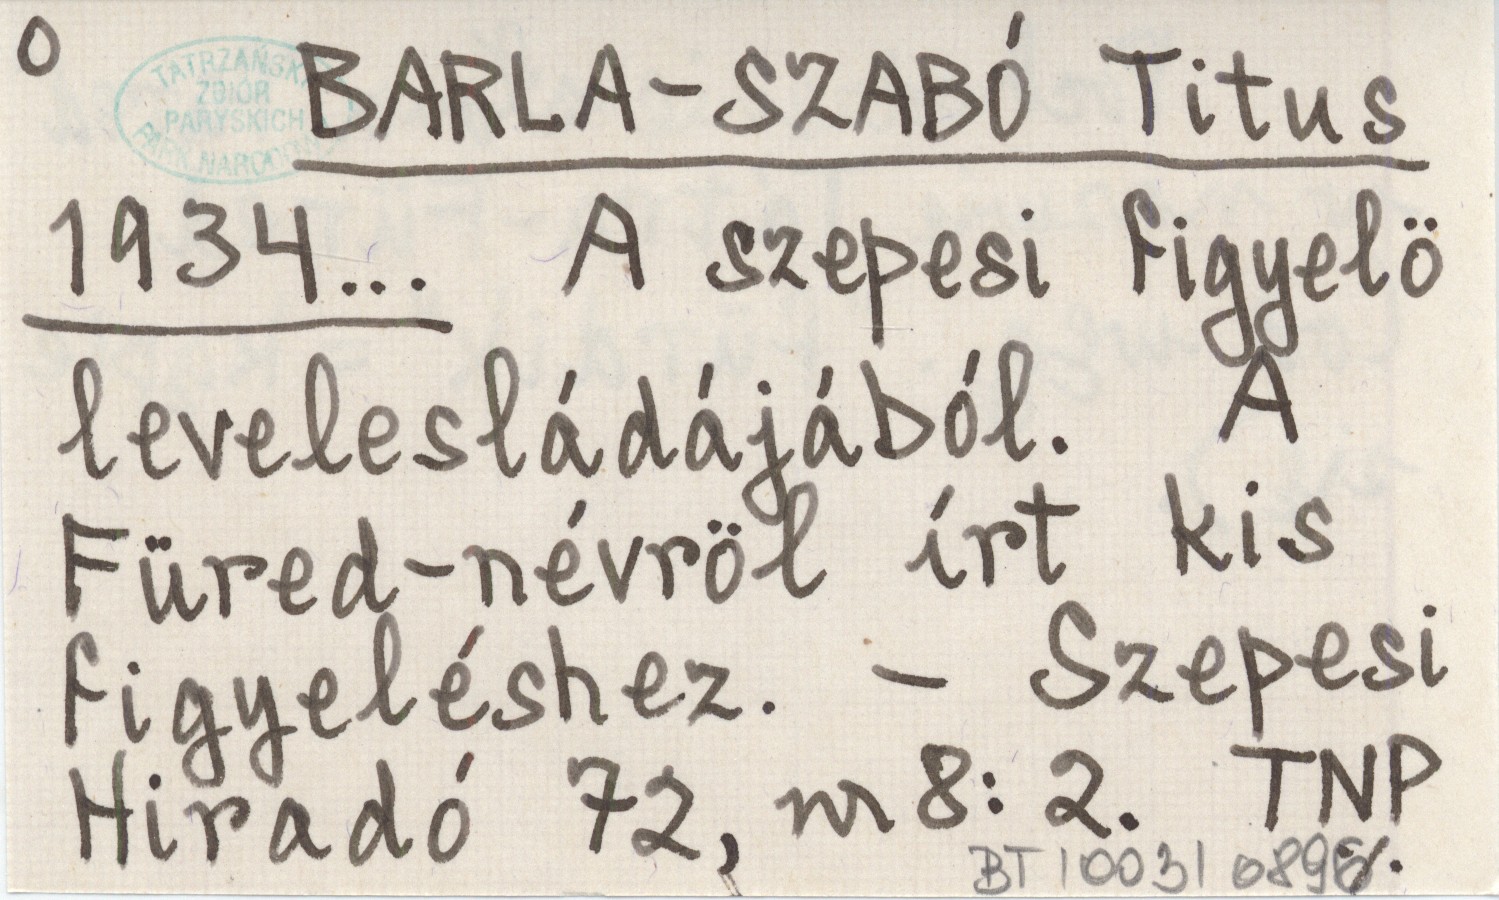 0 BARLA-SZABÓ Titus
TATRZAŃSKI
ZBIÓR
PARYSKICH
PARK NARODOWY
1934... A szepesi figyelö
levelesládájából. A
Füred-névröl írt kis
figyeléshez. - Szepesi
Hiradó 72, nr 8: 2. TNP
BT | 0031